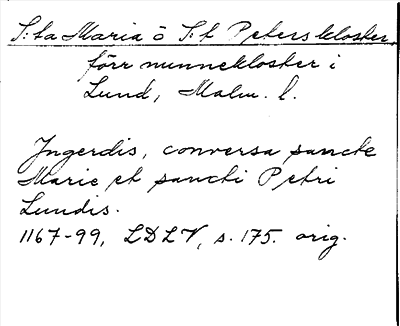 S:ta Maria o S:t Peters kloster,
förr nunnekloster i
Lund, Malm. l.
Jngerdis, conversa sancte
Marie et sancti Petri
Lundis.
1167-99, LDLV, s. 175. orig.